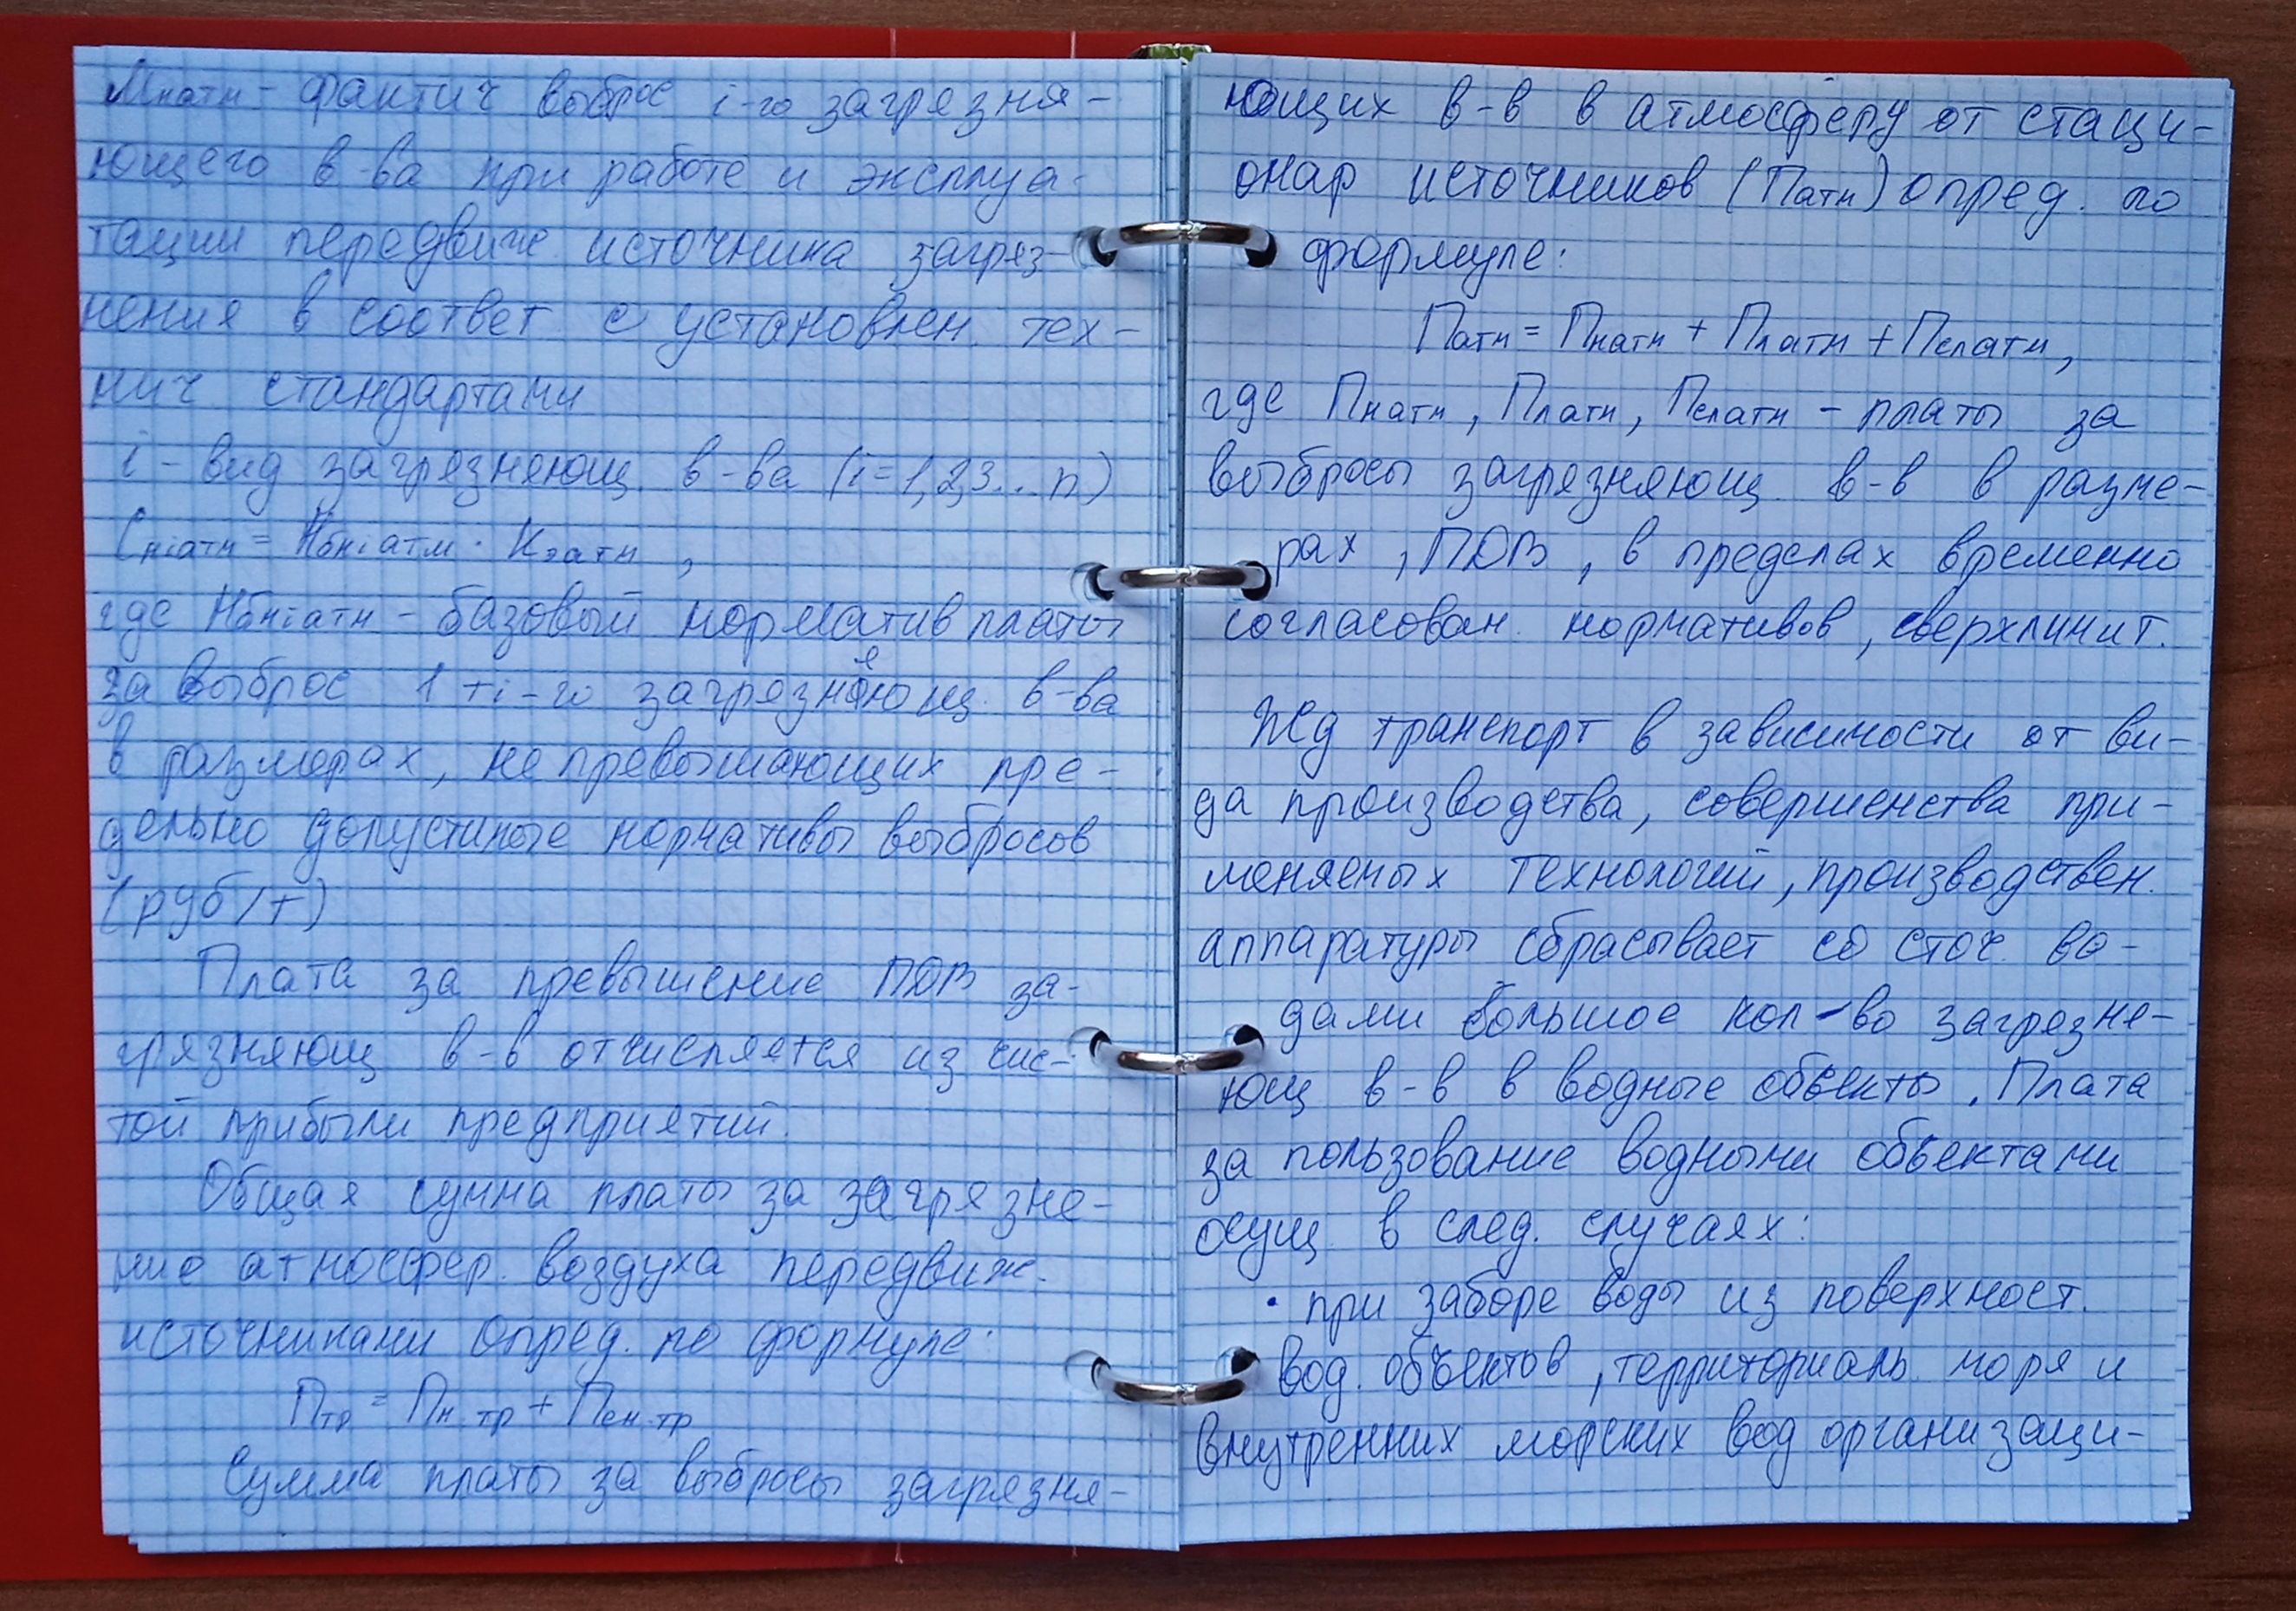 Мнатм - фактич выброс i-го загрязня-
ющего в-ва при работе и эксплуа-
тации передвиж. источника загряз-
нения в соответ. с установлен. тех-
нич стандартами
i - вид загрязняющ. в-ва (i=1,2,3...n)
Снiатм = Нбнiатм · Кэатм ,
где Нбнiатм - базовый норматив платы
за выброс 1 т i-го загрязняющ. в-ва
в размерах, не превышающих пре-
дельно допустимые нормативы выбросов
(руб/т)
Плата за превышение ПДВ за-
грязняющ в-в отчисляется из чис-
той прибыли предприятий.
Общая сумма платы за загрязне-
ние атмосфер. воздуха передвиж.
источниками опред. по формуле:
Птр = Пн.тр + Псн.тр
Сумма платы за выбросы загрязня-
ющих в-в в атмосферу от стаци-
онар источников (Патм) опред. по
формуле:
Патм = Пнатм + Платм + Пслатм,
где Пнатм, Платм, Пслатм - платы за
выбросы загрязняющ. в-в в разме-
рах , ПДВ , в пределах временно
согласован. нормативов, сверхлимит.
Жд транспорт в зависимости от ви-
да производства, совершенства при-
меняемых технологий, производствен.
аппаратуры сбрасывает со сточ. во-
дами большое кол-во загрязня-
ющ в-в в водные объекты. Плата
за пользование водными объектами
осущ. в след. случаях:
• при заборе воды из поверхност.
вод. объектов, территориаль. моря и
внутренних морских вод организаци-